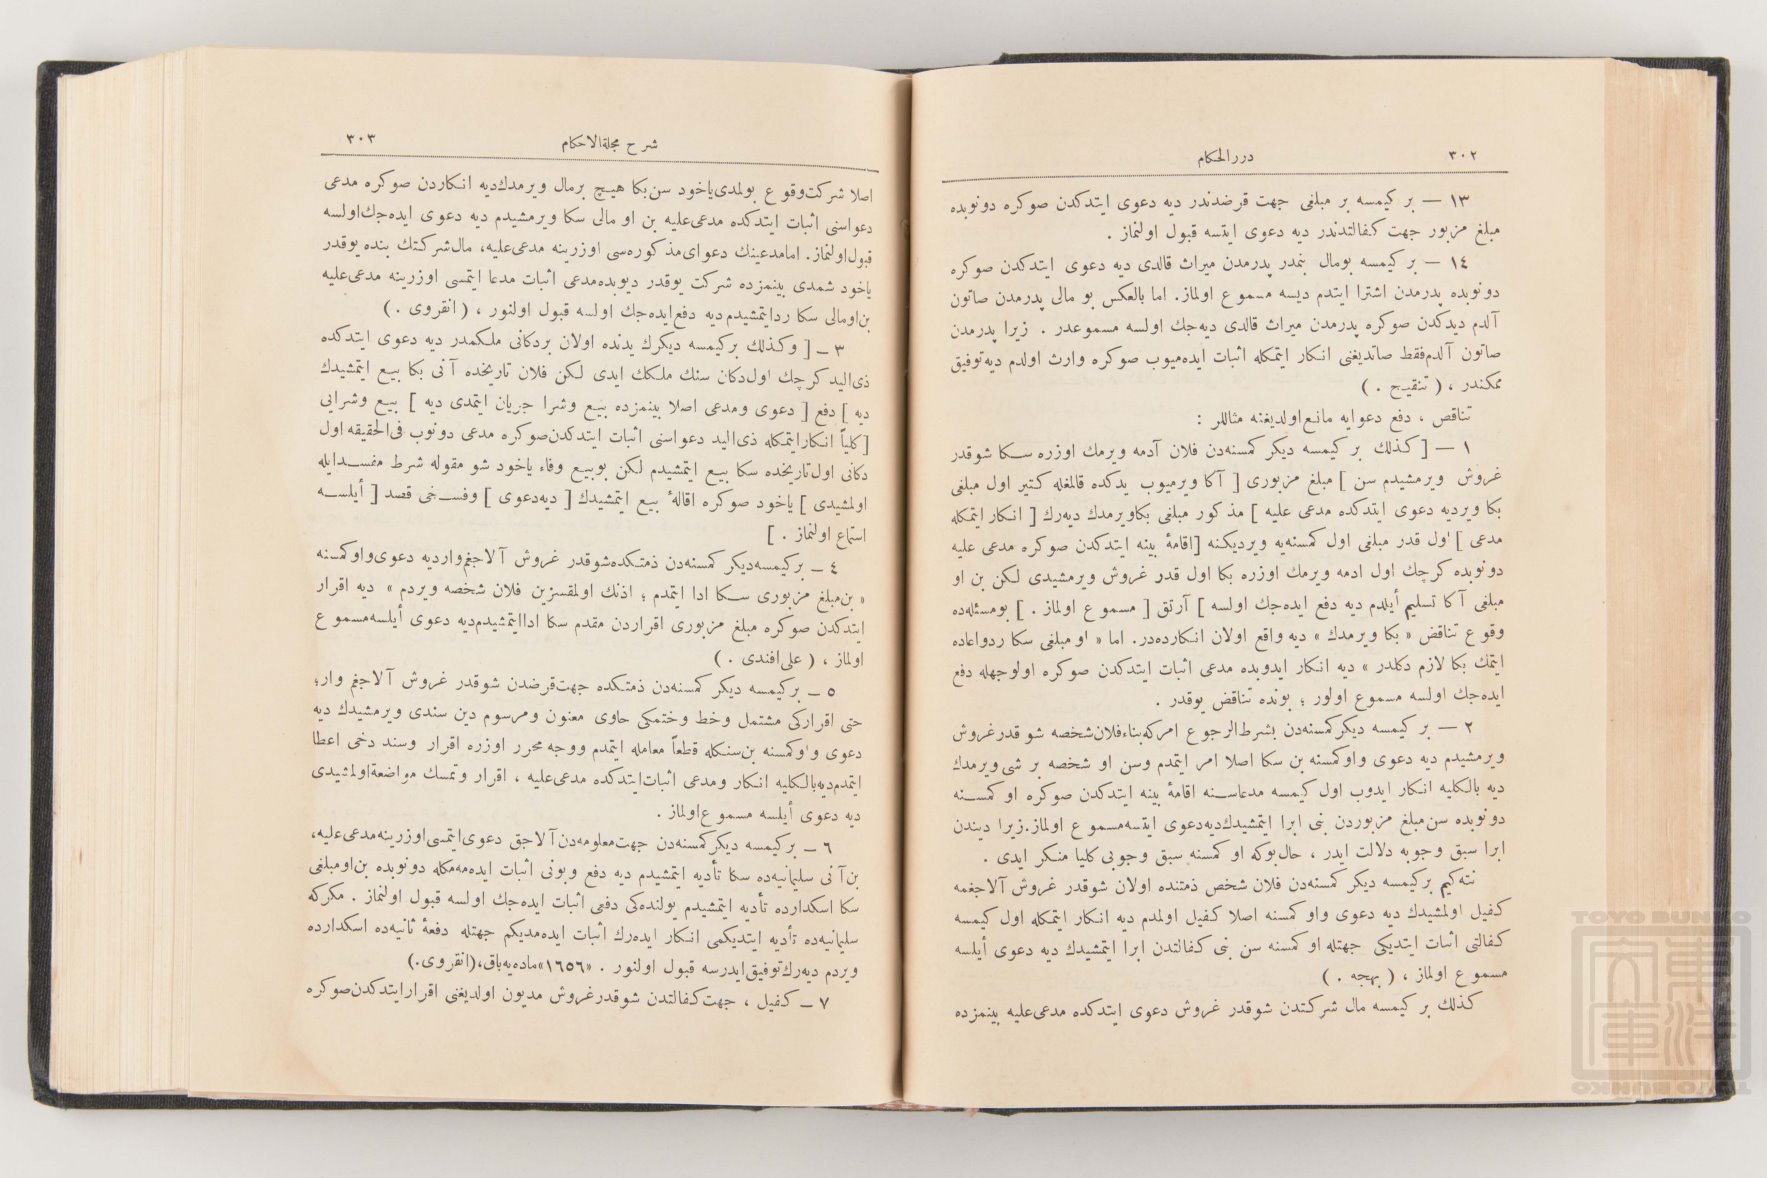 ٣٠٢
دررالحكام
١٣ — بر كیمسه بر مبلغی جهت قرضدندر دیه دعوی ایتدكدن صوكره دونوبده
مبلغ مزبور جهت كفالتدندر دیه دعوی ایتسه قبول اولنماز .
١٤ — بر كیمسه بومال بنمدر پدرمدن میراث قالدی دیه دعوی ایتدكدن صوكره
دونوبده پدرمدن اشترا ایتدم دیسه مسموع اولماز. اما بالعكس بو مالی پدرمدن صاتون
آلدم دیدكدن صوكره پدرمدن میراث قالدی دیه‌جك اولسه مسموعدر . زیرا پدرمدن
صاتون آلدم فقط صاتدیغنی انكار ایتمكله اثبات ایده‌میوب صوكره وارث اولدم دیه توفیق
ممكندر ، ( تنقیح . )
تناقض ، دفع دعوایه مانع اولدیغنه مثاللر :
١ — [ كذلك بر كیمسه دیكر كمسنه‌دن فلان آدمه ویرمك اوزره سكا شوقدر
غروش ویرمشیدم سن ] مبلغ مزبوری [ آكا ویرمیوب یدكده قالمغله كتیر اول مبلغی
بكا ویر دیه دعوی ایتدكده مدعی علیه ] مذكور مبلغی بكا ویرمدك دیه‌رك [ انكار ایتمكله
مدعی ] اول قدر مبلغی اول كمسنه‌یه ویردیكنه [ اقامهٔ بینه ایتدكدن صوكره مدعی علیه
دونوبده كرچك اول ادمه ویرمك اوزره بكا اول قدر غروش ویرمشیدی لكن بن او
مبلغی آكا تسلیم أیلدم دیه دفع ایده‌جك اولسه ] آرتق [ مسموع اولماز . ] بومسئله‌ده
وقوع تناقض « بكا ویرمدك » دیه واقع اولان انكارده‌در. اما « او مبلغی سكا رد واعاده
ایتمك بكا لازم دكلدر » دیه انكار ایدوبده مدعی اثبات ایتدكدن صوكره اولوجهله دفع
ایده‌جك اولسه مسموع اولور ؛ بونده تناقض یوقدر .
٢ — بر كیمسه دیكر كمسنه‌دن بشرط الرجوع امركه بناء فلان شخصه شو قدر غروش
ویرمشیدم دیه دعوی واوكمسنه بن سكا اصلا امر ایتمدم وسن او شخصه بر شی ویرمدك
دیه بالكلیه انكار ایدوب اول كیمسه مدعاسنه اقامهٔ بینه ایتدكدن صوكره او كمسنه
دونوبده سن مبلغ مزبوردن بنی ابرا ایتمشیدك دیه دعوی ایتسه مسموع اولماز. زیرا دیندن
ابرا سبق وجوبه دلالت ایدر ، حال بوكه او كمسنه سبق وجوبی كلیا منكر ایدی .
نته‌كیم بر كیمسه دیكر كمسنه‌دن فلان شخص ذمتنده اولان شوقدر غروش آلاجغمه
كفیل اولمشیدك دیه دعوی واو كمسنه اصلا كفیل اولمدم دیه انكار ایتمكله اول كیمسه
كفالتی اثبات ایتدیكی جهتله او كمسنه سن بنی كفالتدن ابرا ایتمشیدك دیه دعوی أیلسه
مسموع اولماز ، ( بهجه . )
كذلك بر كیمسه مال شركتدن شوقدر غروش دعوی ایتدكده مدعی‌علیه بینمزده
٣٠٣
شرح مجلةالاحكام
اصلا شركت وقوع بولمدی یاخود سن بكا هیچ بر مال ویرمدك دیه انكاردن صوكره مدعی
دعواسنی اثبات ایتدكده مدعی‌علیه بن او مالی سكا ویرمشیدم دیه دعوی ایده‌جك اولسه
قبول اولنماز. اما مدعینك دعوای مذكوره‌سی اوزرینه مدعی‌علیه، مال شركتك بنده یوقدر
یاخود شمدی بینمزده شركت یوقدر دیوبده مدعی اثبات مدعا ایتمسی اوزرینه مدعی‌علیه
بن اومالی سكا رد ایتمشیدم دیه دفع ایده‌جك اولسه قبول اولنور ، ( انقروی . )
٣ — [ وكذلك بر كیمسه دیكرك یدنده اولان بر دكانی ملكمدر دیه دعوی ایتدكده
ذی‌الید كرچك اول دكان سنك ملكك ایدی لكن فلان تاریخده آنی بكا بیع ایتمشیدك
دیه ] دفع [ دعوی ومدعی اصلا بینمزده بیع وشرا جریان ایتمدی دیه ] بیع وشرایی
[ كلیاً انكار ایتمكله ذی‌الید دعواسنی اثبات ایتدكدن صوكره مدعی دونوب فی‌الحقیقه اول
دكانی اول تاریخده سكا بیع ایتمشیدم لكن بو بیع وفاء یاخود شو مقوله شرط مفسد ایله
اولمشیدی ] یاخود صوكره اقالهٔ بیع ایتمشیدك [ دیه دعوی ] وفسخی قصد [ أیلسه
استماع اولنماز . ]
٤ — بر كیمسه دیكر كمسنه‌دن ذمتكده شوقدر غروش آلاجغم وار دیه دعوی واو كمسنه
« بن مبلغ مزبوری سكا ادا ایتمدم ؛ اذنك اولمقسزین فلان شخصه ویردم » دیه اقرار
ایتدكدن صوكره مبلغ مزبوری اقراردن مقدم سكا ادا ایتمشیدم دیه دعوی أیلسه مسموع
اولماز ، ( علی افندی . )
٥ — بر كیمسه دیكر كمسنه‌دن ذمتكده جهت قرضدن شوقدر غروش آلاجغم وار؛
حتی اقراركی مشتمل وخط وختمكی حاوی معنون ومرسوم دین سندی ویرمشیدك دیه
دعوی واو كمسنه بن سنكله قطعاً معامله ایتمدم ووجه محرر اوزره اقرار وسند دخی اعطا
ایتمدم دیه بالكلیه انكار ومدعی اثبات ایتدكده مدعی‌علیه ، اقرار وتمسك مواضعةً اولمشیدی
دیه دعوی أیلسه مسموع اولماز .
٦ — بر كیمسه دیكر كمسنه‌دن جهت معلومه‌دن آلاجق دعوی ایتمسی اوزرینه مدعی‌علیه،
بن آنی سلیمانیه‌ده سكا تأدیه ایتمشیدم دیه دفع وبونی اثبات ایده‌مه‌مكله دونوبده بن اومبلغی
سكا اسكدارده تأدیه ایتمشیدم یولنده‌كی دفعی اثبات ایده‌جك اولسه قبول اولنماز . مكركه
سلیمانیه‌ده تأدیه ایتدیكمی انكار ایده‌رك اثبات ایده‌مدیكم جهتله دفعهٔ ثانیه‌ده اسكدارده
ویردم دیه‌رك توفیق ایدرسه قبول اولنور . «١٦٥٦» ماده‌یه باق، (انقروی.)
٧ — كفیل ، جهت كفالتدن شوقدر غروش مدیون اولدیغنی اقرار ایتدكدن صوكره
TOYO BUNKO
東洋文庫
TOYO BUNKO